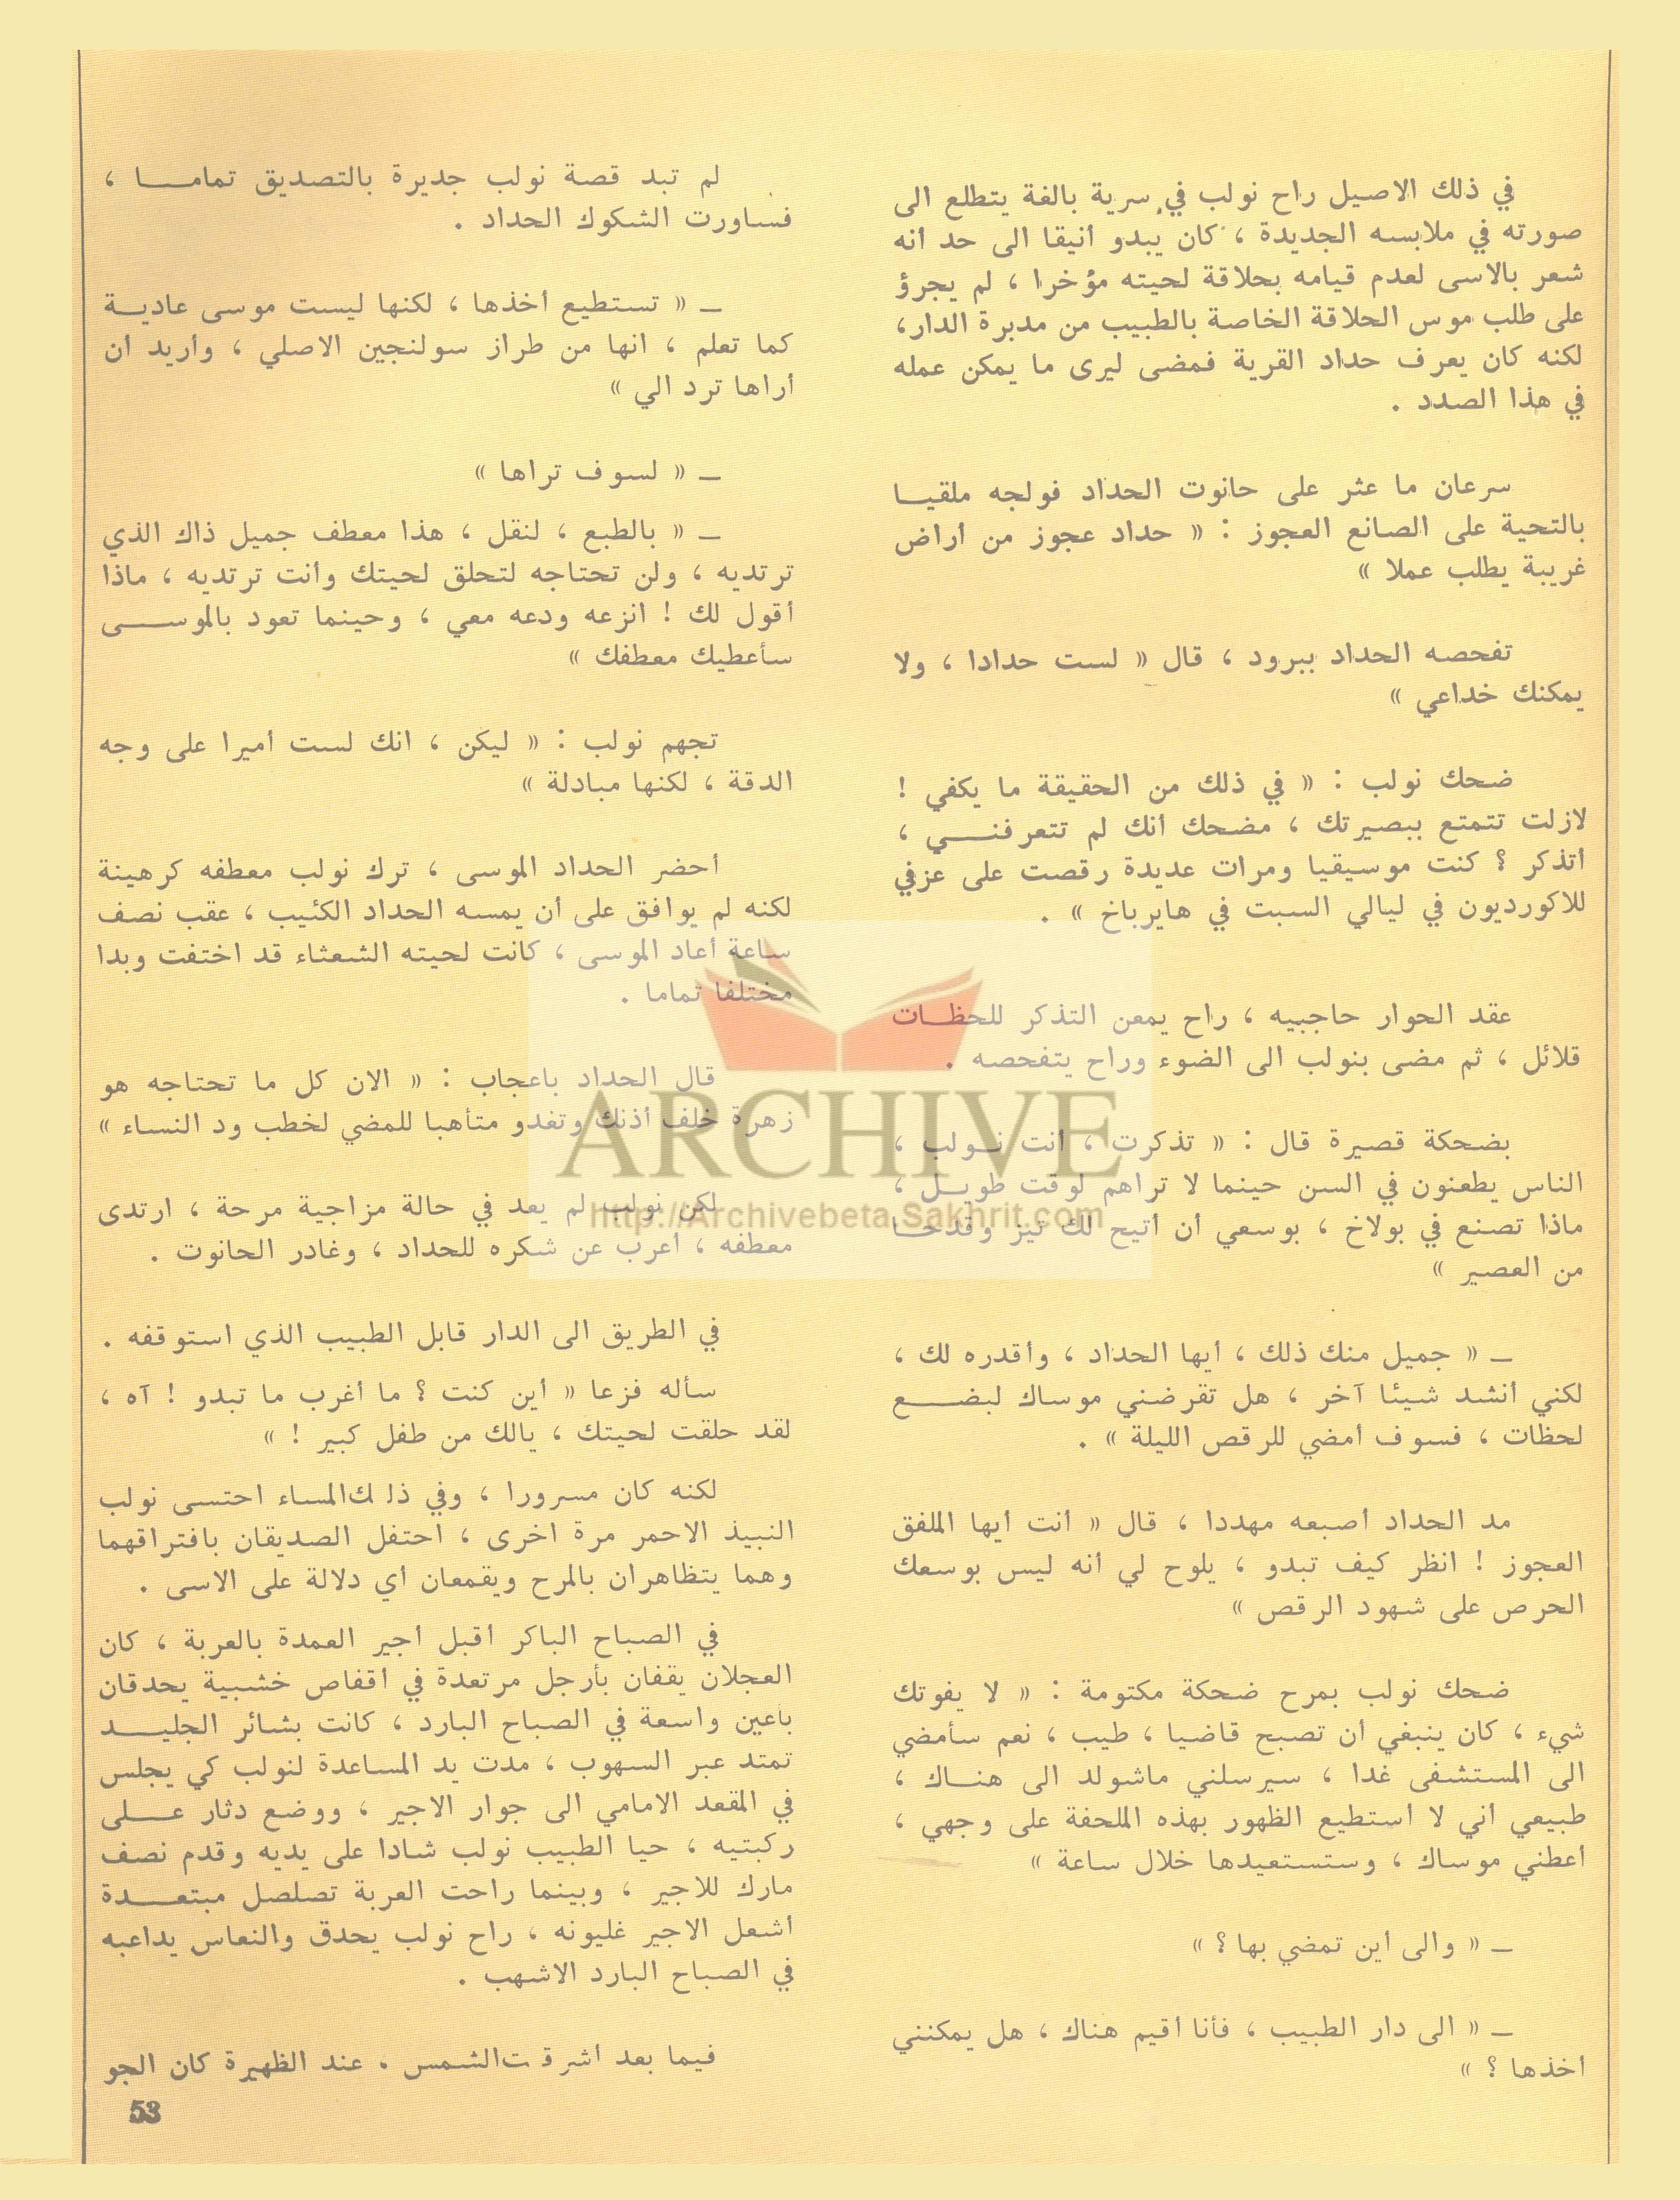 في ذلك الاصيل راح نولب في سرية بالغة يتطلع الى
صورته في ملابسه الجديدة ، كان يبدو أنيقا الى حد أنه
شعر بالاسى لعدم قيامه بحلاقة لحيته مؤخرا ، لم يجرؤ
على طلب موس الحلاقة الخاصة بالطبيب من مدبرة الدار،
لكنه كان يعرف حداد القرية فمضى ليرى ما يمكن عمله
في هذا الصدد .
سرعان ما عثر على حانوت الحداد فولجه ملقيا
بالتحية على الصانع العجوز : « حداد عجوز من أراض
غريبة يطلب عملا »
تفحصه الحداد ببرود ، قال « لست حدادا ، ولا
يمكنك خداعي »
ضحك نولب : « في ذلك من الحقيقة ما يكفي !
لازلت تتمتع ببصيرتك ، مضحك أنك لم تتعرفني ،
أتذكر ؟ كنت موسيقيا ومرات عديدة رقصت على عزفي
للاكورديون في ليالي السبت في هايرباخ » .
عقد الحوار حاجبيه ، راح يمعن التذكر للحظات
قلائل ، ثم مضى بنولب الى الضوء وراح يتفحصه .
بضحكة قصيرة قال : « تذكرت ، أنت نولب ،
الناس يطعنون في السن حينما لا تراهم لوقت طويل ،
ماذا تصنع في بولاخ ، بوسعي أن أتيح لك تيز وقدحا
من العصير »
ـ « جميل منك ذلك ، أيها الحداد ، وأقدره لك ،
لكني أنشد شيئا آخر ، هل تقرضني موساك لبضع
لحظات ، فسوف أمضي للرقص الليلة » .
مد الحداد أصبعه مهددا ، قال « أنت أيها الملفق
العجوز ! انظر كيف تبدو ، يلوح لي أنه ليس بوسعك
الحرص على شهود الرقص »
ضحك نولب بمرح ضحكة مكتومة : « لا يفوتك
شيء ، كان ينبغي أن تصبح قاضيا ، طيب ، نعم سأمضي
الى المستشفى غدا ، سيرسلني ماشولد الى هناك ،
طبيعي أني لا أستطيع الظهور بهذه الملحفة على وجهي ،
أعطني موساك ، وستستعيدها خلال ساعة »
ـ « والى أين تمضي بها ؟ »
ـ « الى دار الطبيب ، فأنا أقيم هناك ، هل يمكنني
أخذها ؟ »
لم تبد قصة نولب جديرة بالتصديق تماما ،
فساورت الشكوك الحداد .
ـ « تستطيع أخذها ، لكنها ليست موسى عادية
كما تعلم ، انها من طراز سولنجين الاصلي ، وأريد ان
أراها ترد الي »
ـ « لسوف تراها »
ـ « بالطبع ، لنقل ، هذا معطف جميل ذاك الذي
ترتديه ، ولن تحتاجه لتحلق لحيتك وأنت ترتديه ، ماذا
أقول لك ! انزعه ودعه معي ، وحينما تعود بالموسى
سأعطيك معطفك »
تجهم نولب : « ليكن ، انك لست أميرا على وجه
الدقة ، لكنها مبادلة »
أحضر الحداد الموسى ، ترك نولب معطفه كرهينة
لكنه لم يوافق على أن يمسه الحداد الكئيب ، عقب نصف
ساعة أعاد الموسى ، كانت لحيته الشعثاء قد اختفت وبدا
مختلفا تماما .
قال الحداد باعجاب : « الان كل ما تحتاجه هو
زهرة خلف أذنك وتغدو متأهبا للمضي لخطب ود النساء »
لكن نولب لم يعد في حالة مزاجية مرحة ، ارتدى
معطفه ، أعرب عن شكره للحداد ، وغادر الحانوت .
في الطريق الى الدار قابل الطبيب الذي استوقفه .
سأله فزعا « أين كنت ؟ ما أغرب ما تبدو ! آه ،
لقد حلقت لحيتك ، يالك من طفل كبير ! »
لكنه كان مسرورا ، وفي ذلك المساء احتسى نولب
النبيذ الاحمر مرة اخرى ، احتفل الصديقان بافتراقهما
وهما يتظاهران بالمرح ويقمعان أي دلالة على الاسى .
في الصباح الباكر أقبل أجير العمدة بالعربة ، كان
العجلان يقفان بأرجل مرتعدة في أقفاص خشبية يحدقان
بأعين واسعة في الصباح البارد ، كانت بشائر الجليد
تمتد عبر السهوب ، مدت يد المساعدة لنولب كي يجلس
في المقعد الامامي الى جوار الاجير ، ووضع دثار على
ركبتيه ، حيا الطبيب نولب شادا على يديه وقدم نصف
مارك للاجير ، وبينما راحت العربة تصلصل مبتعدة
أشعل الاجير غليونه ، راح نولب يحدق والنعاس يداعبه
في الصباح البارد الاشهب .
فيما بعد أشرقت الشمس ، عند الظهيرة كان الجو
53
ARCHIVE
http://Archivebeta.Sakhrit.com